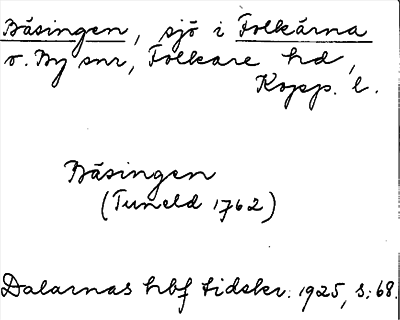 Bäsingen, sjö i Folkärna
o. By snr, Folkare hd,
Kopp. l.
Bäsingen
(Tuneld 1762)
Dalarnas hbf tidskr. 1925, s:68.